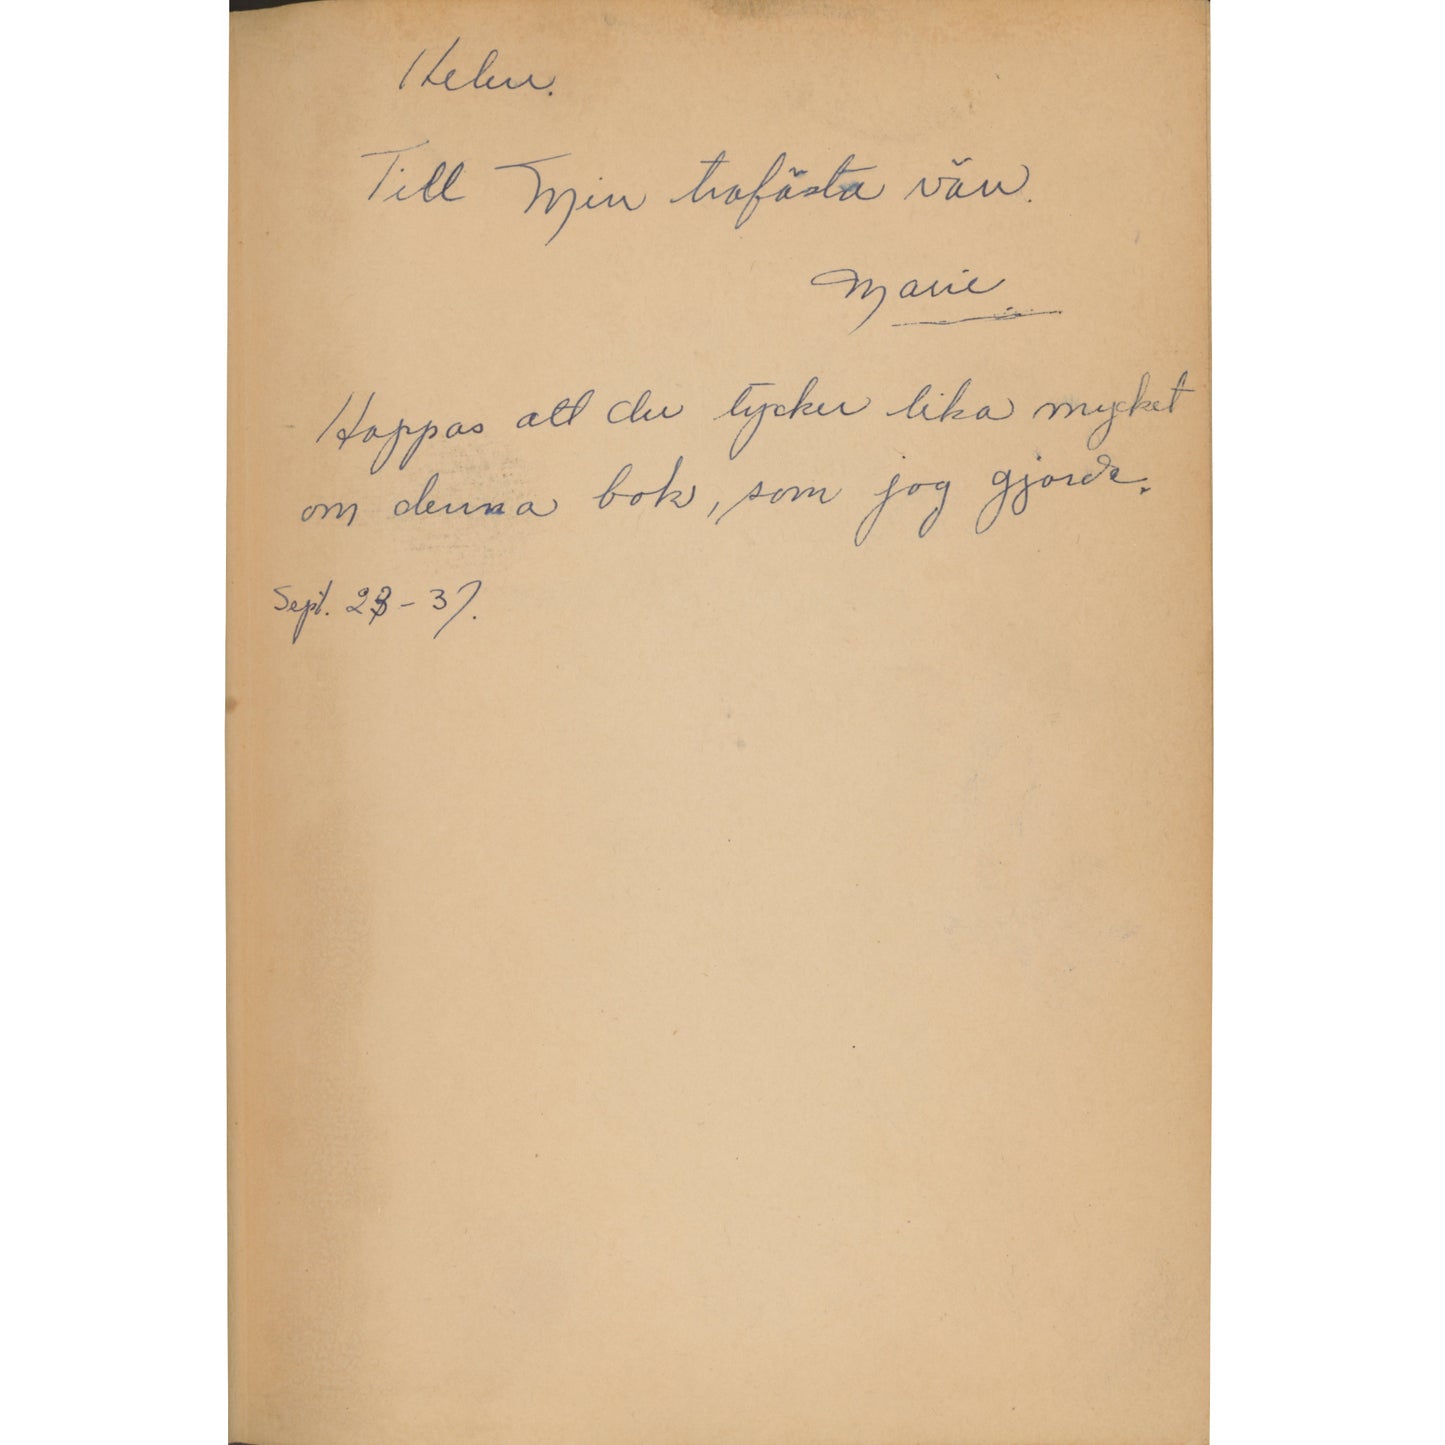 Helen.
Till Min trofästa vän.
Marie
Hoppas att du tycker lika mycket
om denna bok, som jag gjorde.
Sept. 23 - 37.